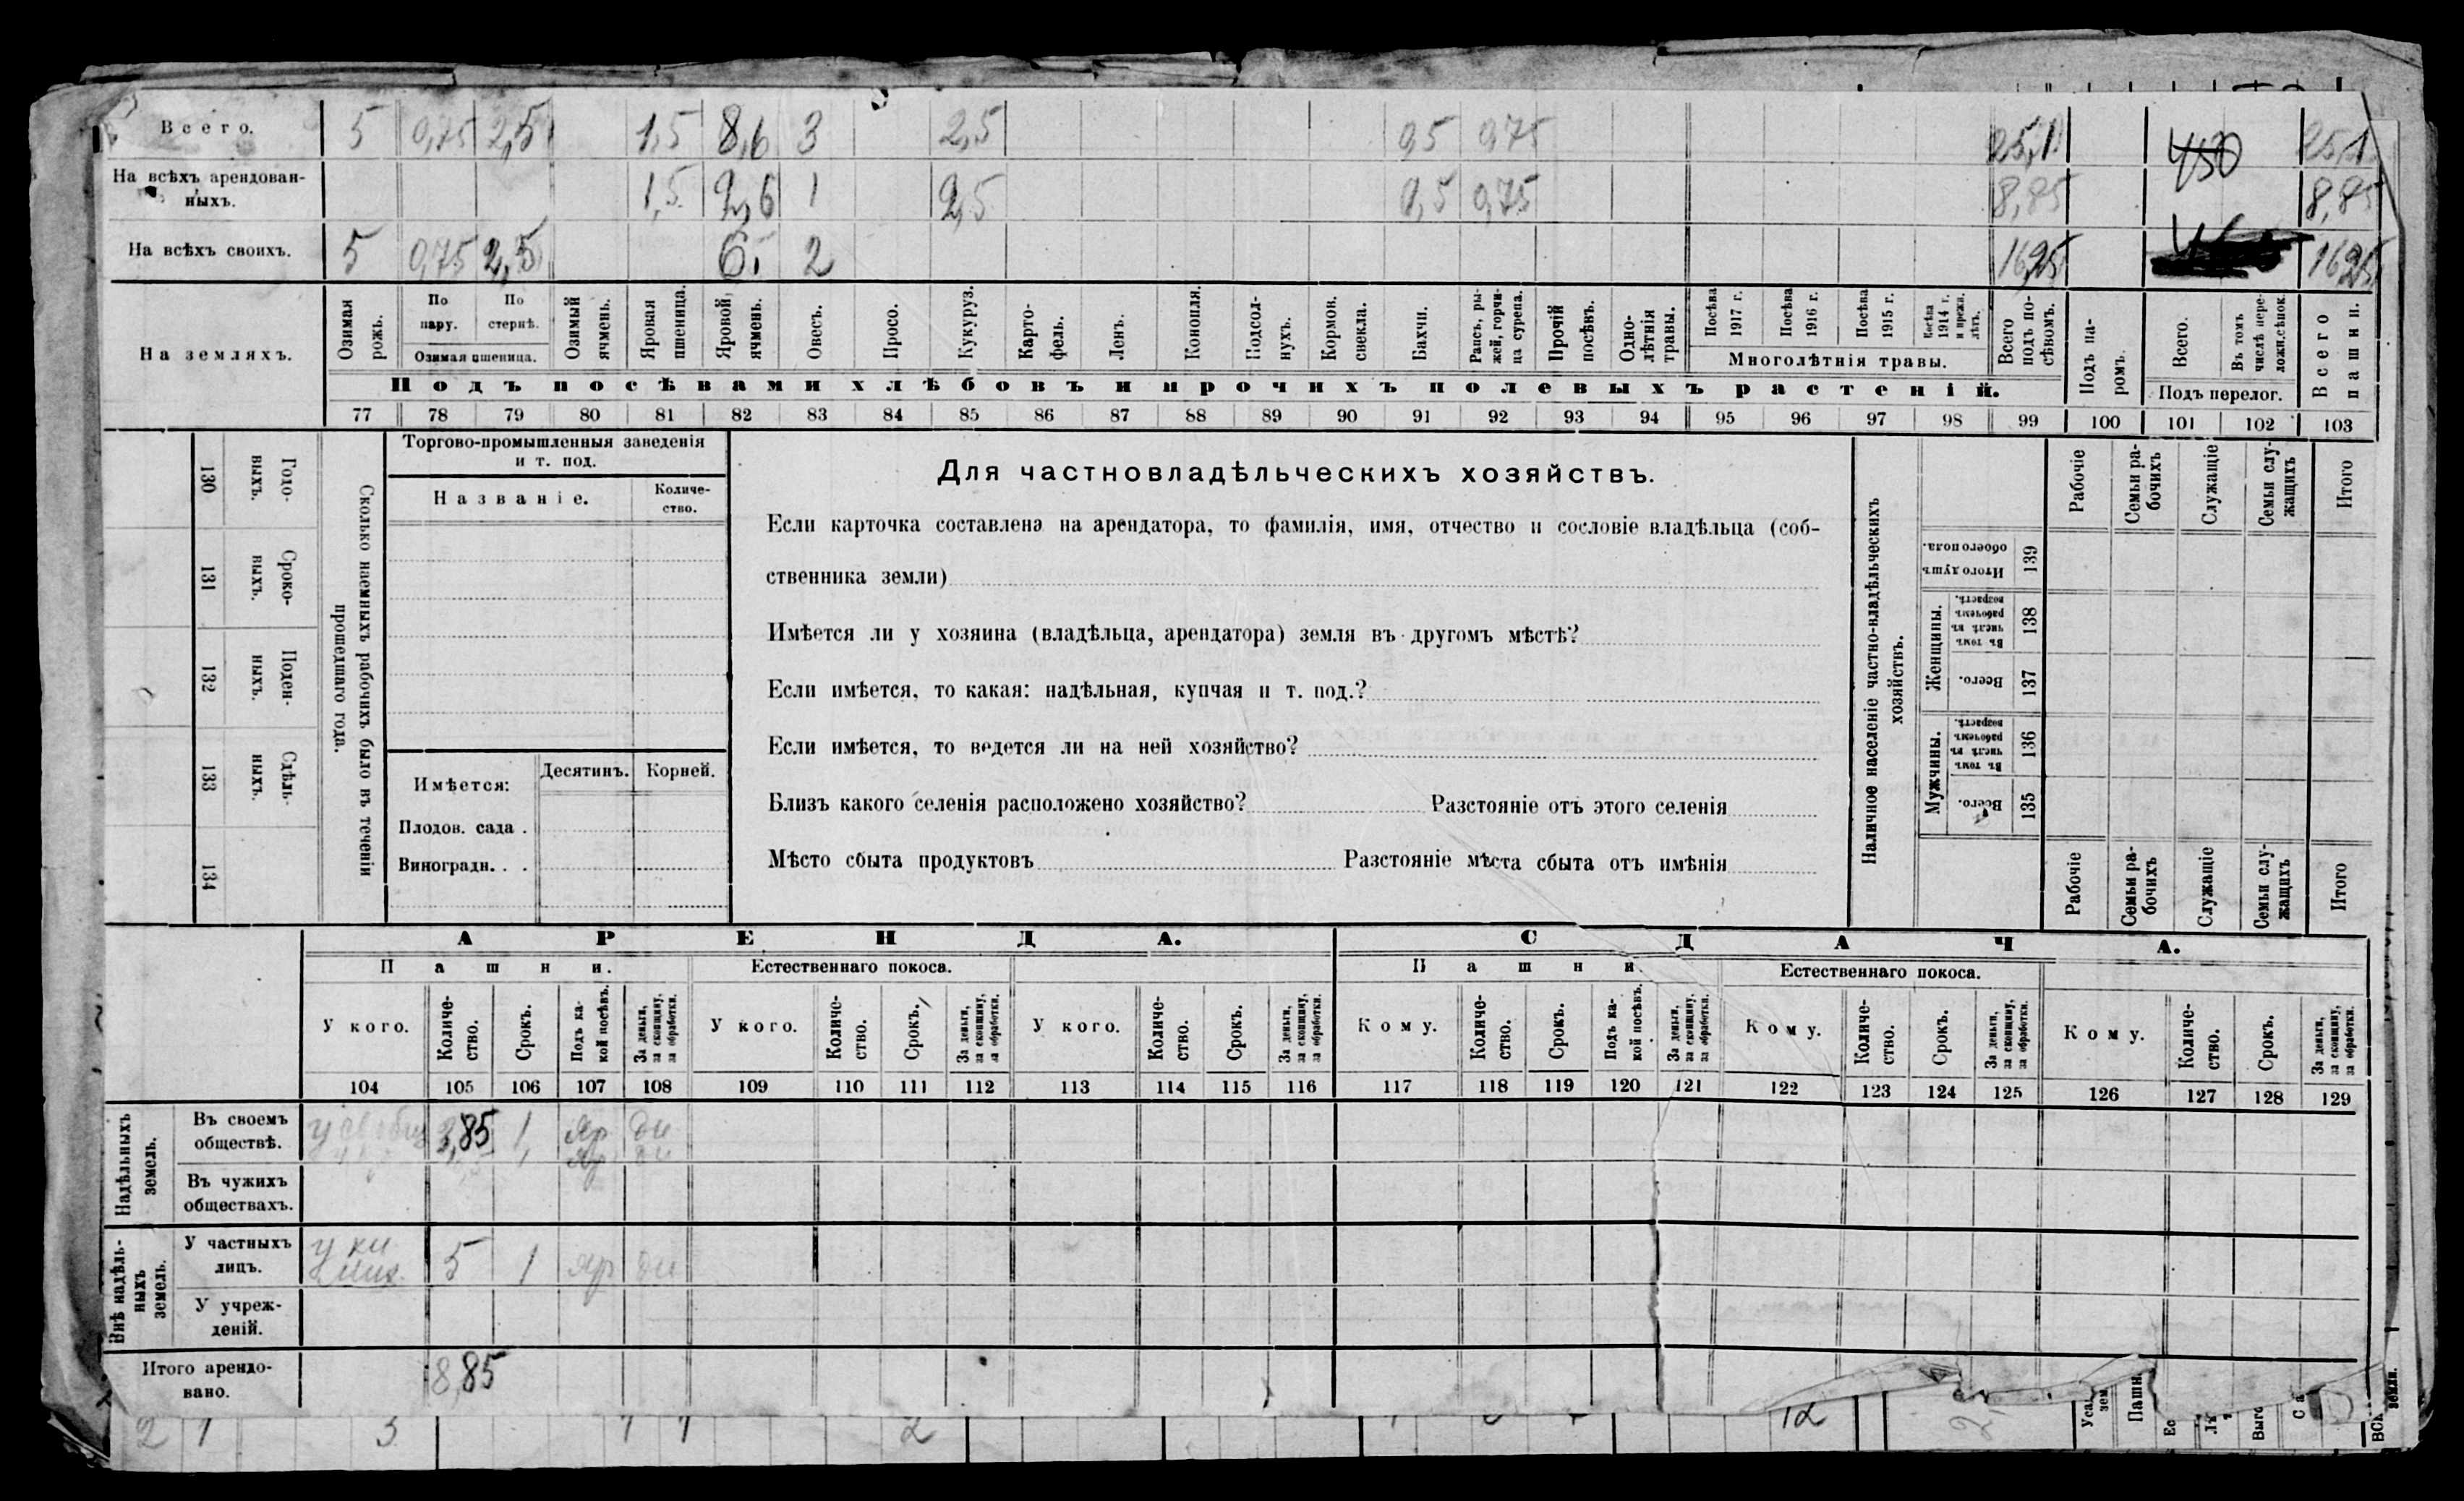 Всего. 5 0,75 2,5 1,5 8,6 3 2,5 0,5 0,75 25,1 450 25,1
На всѣхъ арендован-
ныхъ. 1,5 2,6 1 2,5 0,5 0,75 8,85 8,85
На всѣхъ своихъ. 5 0,75 2,5 6 2 16,25 16,25
На земляхъ.
Озимая рожь.
По пару.
По стернѣ.
Озимая пшеница.
Озимый ячмень.
Яровая пшеница.
Яровой ячмень.
Овесъ.
Просо.
Кукуруз.
Карто-
фель.
Ленъ.
Конопля.
Подсол-
нухъ.
Кормов.
свекла.
Бахчи.
Рапсъ, ры-
жей, горчи-
ца сурепа.
Прочій
посѣвъ.
Одно-
лѣтнія
травы.
Посѣва
1917 г.
Посѣва
1916 г.
Посѣва
1915 г.
Посѣва
1914 г.
и прежн.
лѣтъ.
Многолѣтнія травы.
Всего
подъ по-
сѣвомъ.
Подъ па-
ромъ.
Всего.
Въ томъ
числѣ пере-
ложн.сѣнок.
Подъ перелог.
Всего
пашни.
Подъ посѣвами хлѣбовъ и прочихъ полевыхъ растеній.
77 78 79 80 81 82 83 84 85 86 87 88 89 90 91 92 93 94 95 96 97 98 99 100 101 102 103
130 Годо-
выхъ.
131 Сроко-
выхъ.
132 Поден-
ныхъ.
133 Сдѣль-
ныхъ.
134
Сколько наемныхъ рабочихъ было въ теченіи
прошедшаго года.
Торгово-промышленныя заведенія
и т. под.
Названіе.
Количе-
ство.
Имѣется:
Десятинъ.
Корней.
Плодов. сада .
Виноградн. . .
Для частновладѣльческихъ хозяйствъ.
Если карточка составлена на арендатора, то фамилія, имя, отчество и сословіе владѣльца (соб-
ственника земли)
Имѣется ли у хозяина (владѣльца, арендатора) земля въ другомъ мѣстѣ?
Если имѣется, то какая: надѣльная, купчая и т. под.?
Если имѣется, то ведется ли на ней хозяйство?
Близъ какого селенія расположено хозяйство? Разстояніе отъ этого селенія
Мѣсто сбыта продуктовъ Разстояніе мѣста сбыта отъ имѣнія
Наличное населеніе частно-владѣльческихъ
хозяйствъ.
Рабочіе
Семьи ра-
бочихъ
Служащіе
Семьи слу-
жащихъ
Итого
Итого душъ
обоего пола.
139
Женщины.
Въ томъ
числѣ въ
рабочемъ
возрастѣ.
138
Всего.
137
Мужчины.
Въ томъ
числѣ въ
рабочемъ
возрастѣ.
136
Всего.
135
Рабочіе
Семьи ра-
бочихъ
Служащіе
Семьи слу-
жащихъ
Итого
АРЕНДА.
СДАЧА.
Пашни.
Естественнаго покоса.
Пашни.
Естественнаго покоса.
У кого.
Количе-
ство.
Срокъ.
Подъ ка-
кой посѣвъ.
За деньги,
за скопщину,
за обработки.
У кого.
Количе-
ство.
Срокъ.
За деньги,
за скопщину,
за обработки.
У кого.
Количе-
ство.
Срокъ.
За деньги,
за скопщину,
за обработки.
Кому.
Количе-
ство.
Срокъ.
Подъ ка-
кой посѣвъ.
За деньги,
за скопщину,
за обработки.
Кому.
Количе-
ство.
Срокъ.
За деньги,
за скопщину,
за обработки.
Кому.
Количе-
ство.
Срокъ.
За деньги,
за скопщину,
за обработки.
104 105 106 107 108 109 110 111 112 113 114 115 116 117 118 119 120 121 122 123 124 125 126 127 128 129
Надѣльныхъ
земель.
Въ своемъ
обществѣ. 3,85 1 яр
Въ чужихъ
обществахъ.
Внѣ надѣль-
ныхъ
земель.
У частныхъ
лицъ. 5 1 яр
У учреж-
деній.
Итого арендо-
вано. 8,85
2 1 3 1 1 2 12
Пашн
земли.